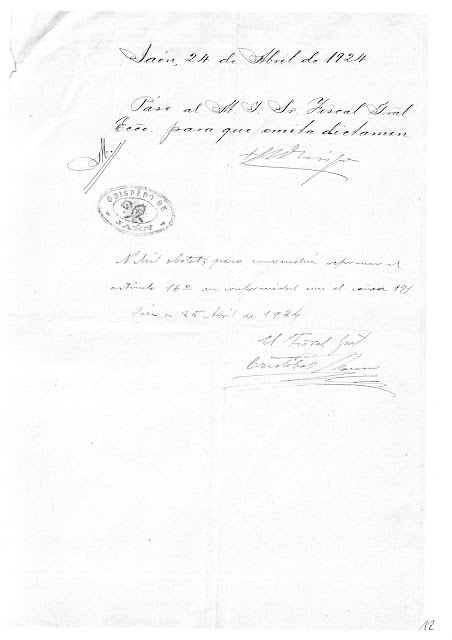 Jaén, 24 de Abril de 1924
Páse al M. I. Sr. Fiscal Gral
Ecco. para que emita dictamen
M.
OBISPADO DE
JAEN
Nihil obstat, pero convendría reformar el
artículo 162 en conformidad con el
Jaén a 25 Abril de 1924
El Fiscal Gral
Cristóbal
12